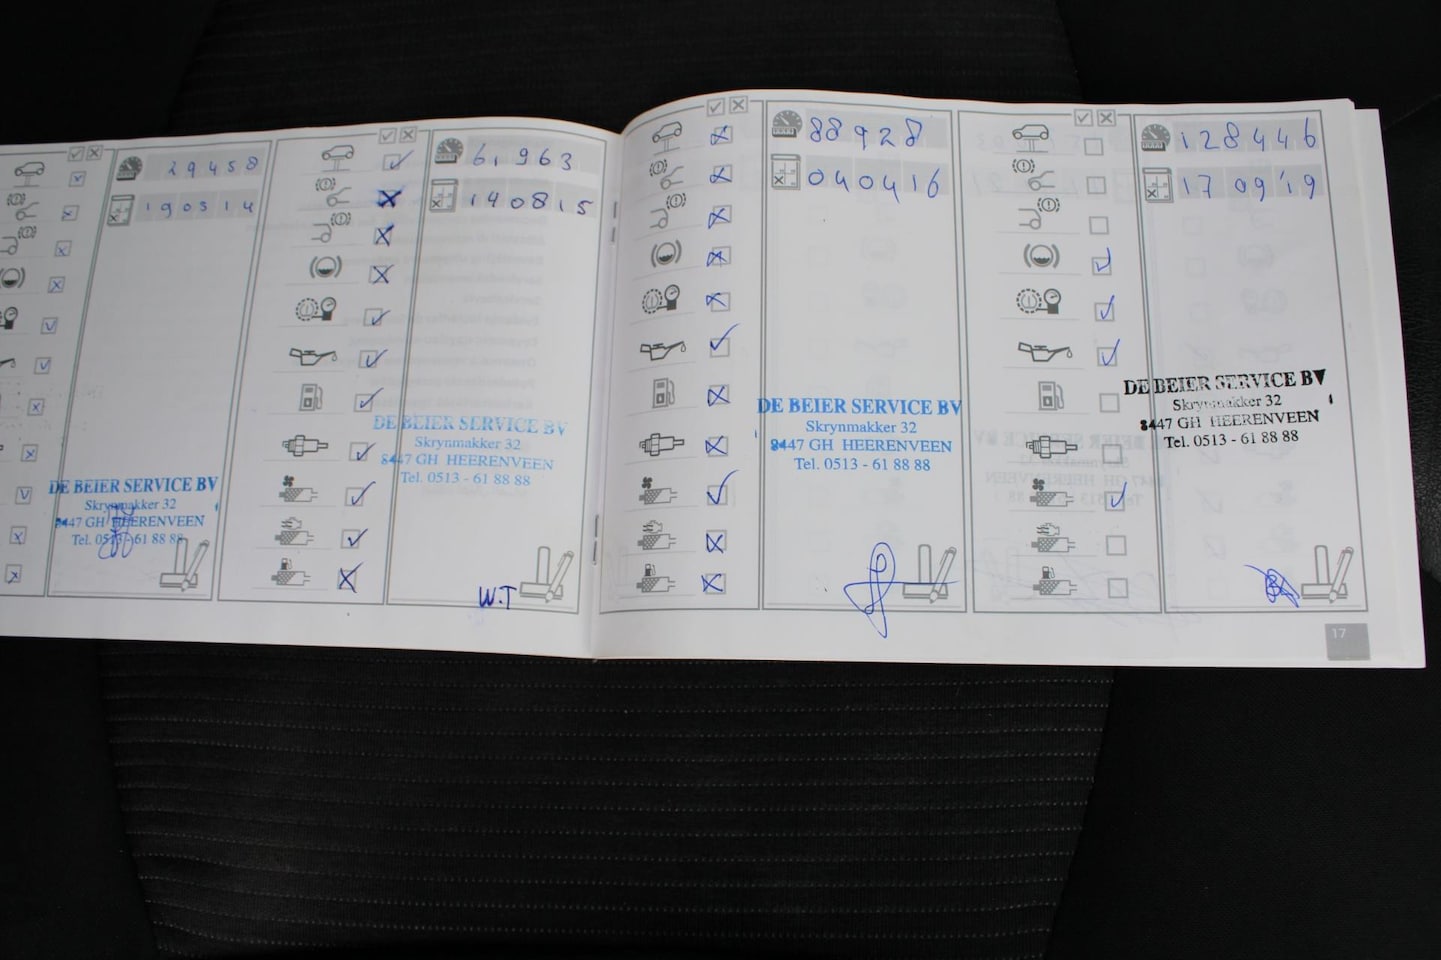 29458
190314
DE BEIER SERVICE BV
Skrynmakker 32
8447 GH HEERENVEEN
Tel. 0513 - 61 88 88
61963
140815
DE BEIER SERVICE BV
Skrynmakker 32
8447 GH HEERENVEEN
Tel. 0513 - 61 88 88
W.T
88928
040416
DE BEIER SERVICE BV
Skrynmakker 32
8447 GH HEERENVEEN
Tel. 0513 - 61 88 88
128446
17 09'19
DE BEIER SERVICE BV
Skrynmakker 32
8447 GH HEERENVEEN
Tel. 0513 - 61 88 88
17